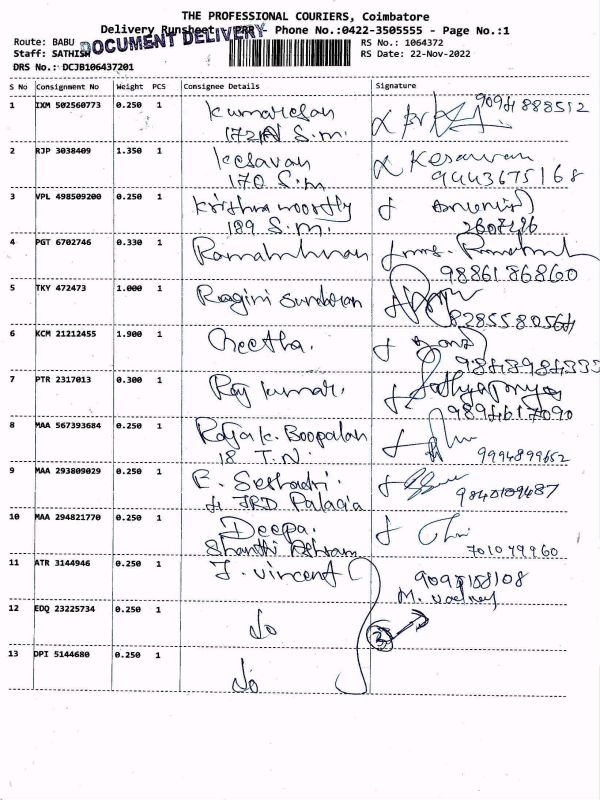 THE PROFESSIONAL COURIERS, Coimbatore
Delivery Runsheet - Phone No.:0422-3505555 - Page No.:1
DOCUMENT DELIVERY
Route: BABU RS No.: 1064372
Staff: SATHISH RS Date: 22-Nov-2022
DRS No.: DCJB106437201
S No Consignment No Weight PCS Consignee Details Signature
1 IXM 502560773 0.250 1 Kumaresan
172A S.M.
2 RJP 3038409 1.350 1 Kesavan Kesavan
170 S.M 9443675168
3 VPL 498509200 0.250 1 Krishna moorthy
189 S.M.
4 PGT 6702746 0.330 1
9886186860
5 TKY 472473 1.000 1 Ragini Sundaran
8285580564
6 KCM 21212455 1.900 1 Geetha.
7 PTR 2317013 0.300 1 Raj kumar. Sathyapriya
9894617090
8 MAA 567393684 0.250 1 Raja K. Boopalan
18 T.N. 9994899652
9 MAA 293809029 0.250 1 E. Seshadri.
4 JRD Palacia 9840109487
10 MAA 294821770 0.250 1 Deepa.
Shanthi Ashram 701079960
11 ATR 3144946 0.250 1 J. Vincent
12 EDQ 23225734 0.250 1 Do
3
13 DPI 5144680 0.250 1 Do